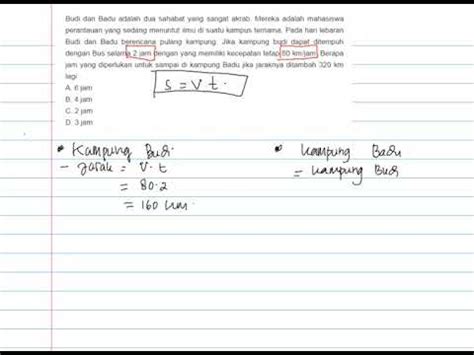 Budi dan Badu adalah dua sahabat yang sangat akrab. Mereka adalah mahasiswa
perantauan yang sedang menuntut ilmu di suatu kampus ternama. Pada hari lebaran
Budi dan Badu berencana pulang kampung. Jika kampung budi dapat ditempuh
dengan Bus selama 2 jam dengan yang memiliki kecepatan tetap 80 km/jam. Berapa
jam yang diperlukan untuk sampai di kampung Badu jika jaraknya ditambah 320 km
lagi
A. 6 jam
B. 4 jam
C. 2 jam
D. 3 jam
s = v t.
• Kampung Budi
- Jarak = v. t
= 80. 2
= 160 km.
• Kampung Badu
= Kampung Budi